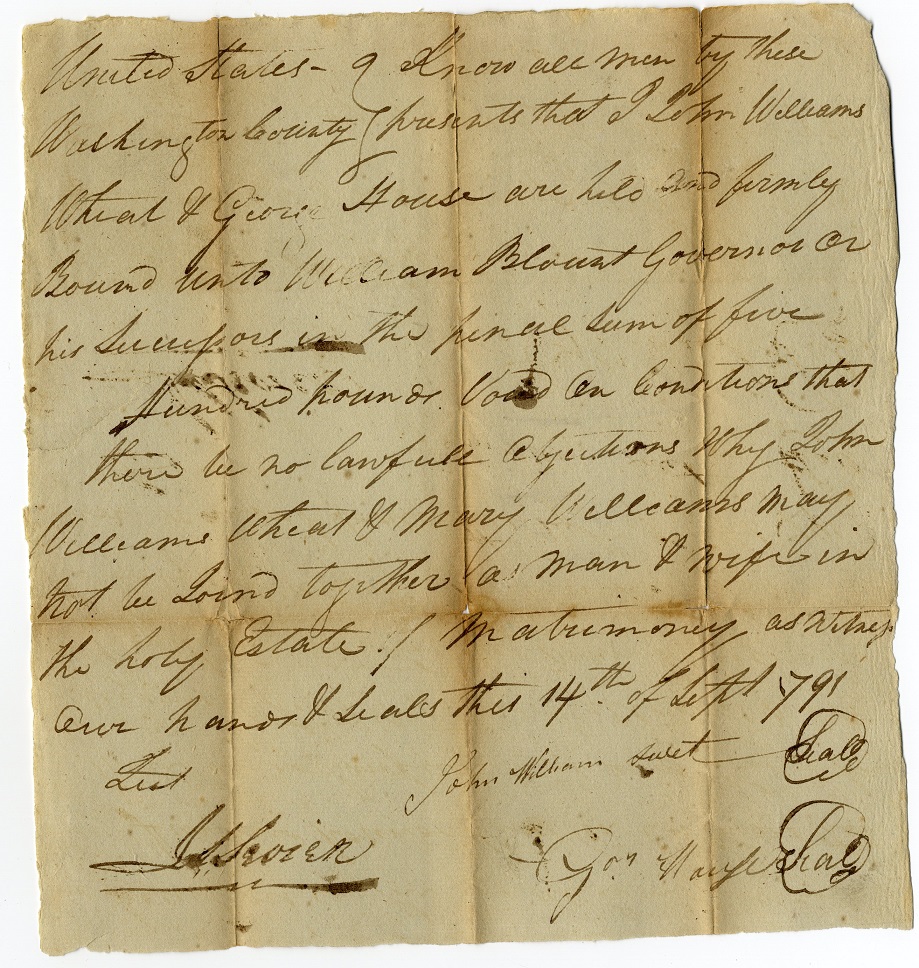 United States - } Know all men by these
Washington County } presents that I John Williams
Wheat & George House are held and firmly
Bound unto William Blount Governor or
his Successors in the penal sum of five
Hundred pounds. Void on Conditions that
there be no lawfull Objections Why John
Williams Wheat & Mary Williams may
not be Joind together as man & wife in
the holy Estate of Matrimoney as witness
our hands & Seales this 14th of Sept 1791
Test John William Seal
Js Sevier
Geor House Seal